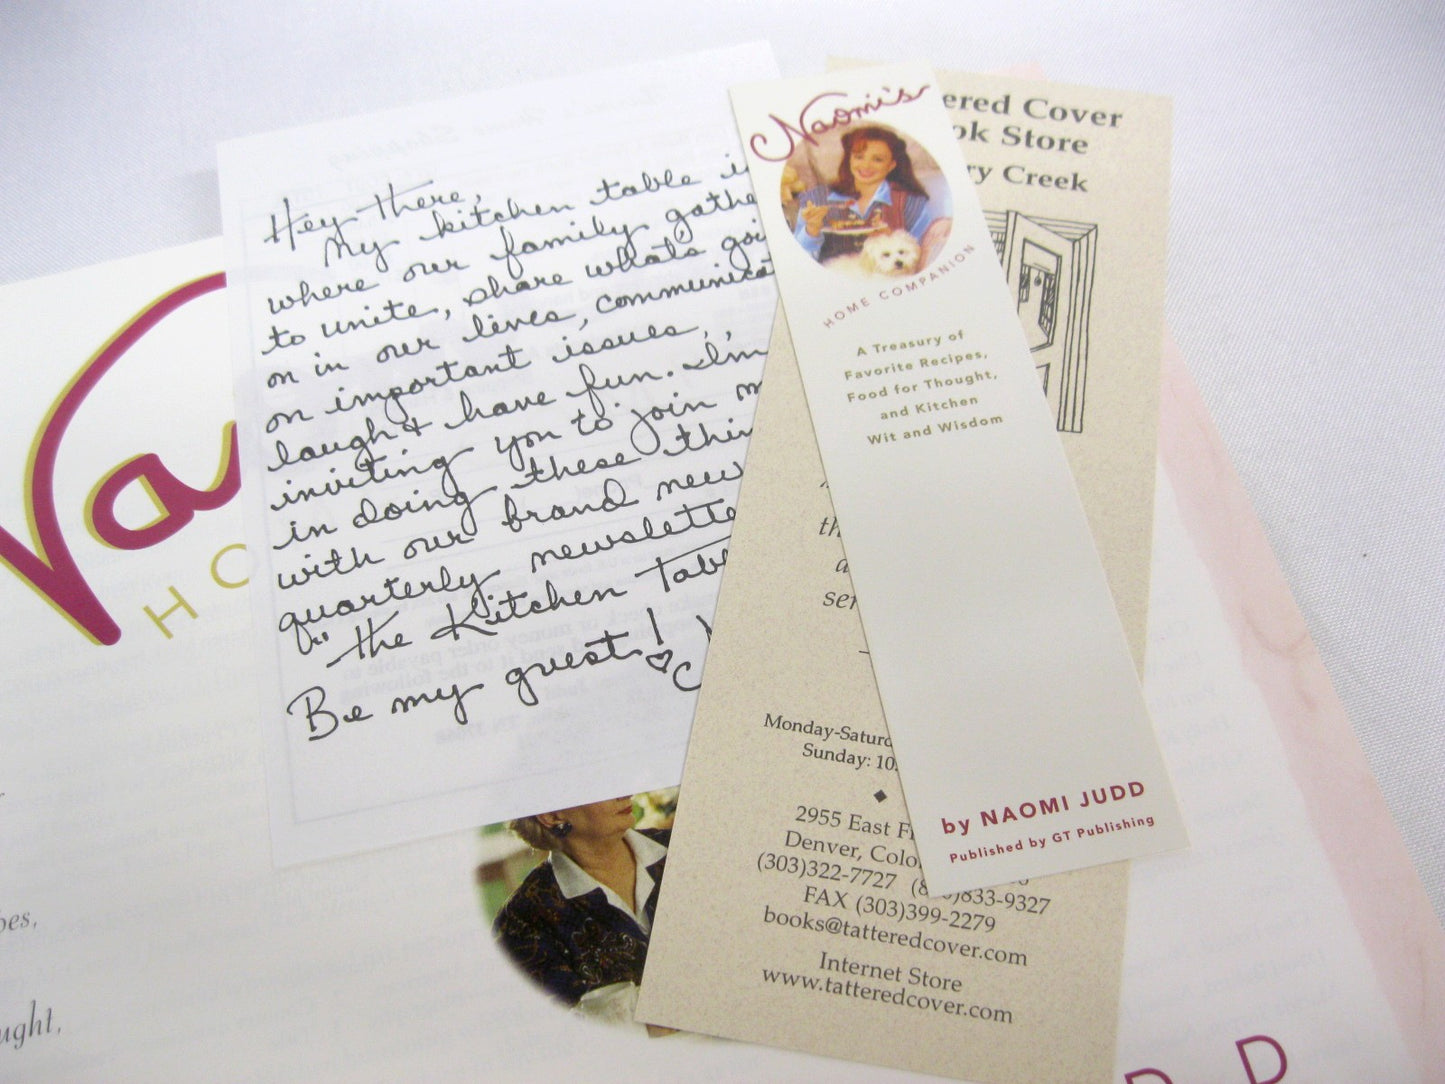 Hey There,
My kitchen table is
where our family gathe
to unite, share what's goi
on in our lives, communicat
on important issues,
laugh & have fun. I'm
inviting you to join m
in doing these thin
with our brand new
quarterly newslette
"The Kitchen Tabl
Be my guest!
Naomi's
HOME COMPANION
A Treasury of
Favorite Recipes,
Food for Thought,
and Kitchen
Wit and Wisdom
by NAOMI JUDD
Published by GT Publishing
ered Cover
ok Store
ry Creek
th
a
ser
Monday-Saturd
Sunday: 10
2955 East Fi
Denver, Colo
(303)322-7727 (8 )833-9327
FAX (303)399-2279
books@tatteredcover.com
Internet Store
www.tatteredcover.com
Na
HO
pes,
ught,
D D